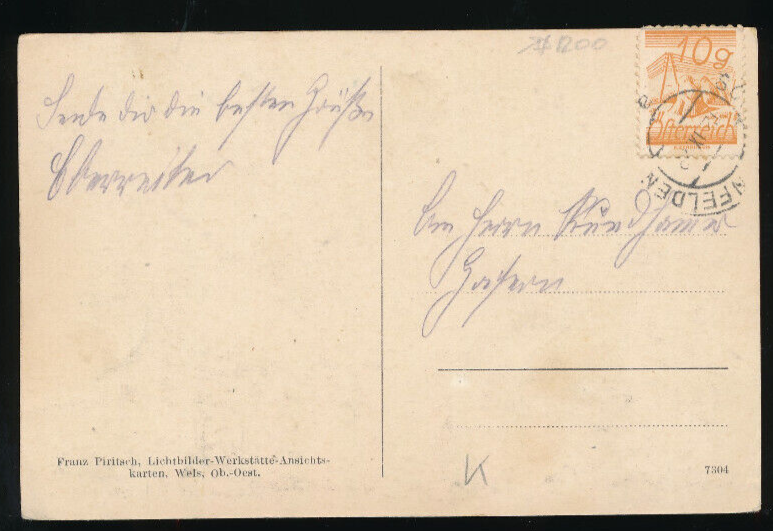 1200
10g
Österreich
NFELDEN
Sende dir die besten Grüße
Oberreiter
An Herrn Rundhamer
Gaisern
Franz Piritsch, Lichtbilder-Werkstätte-Ansichts-
karten, Wels, Ob.-Oest.
K
7304